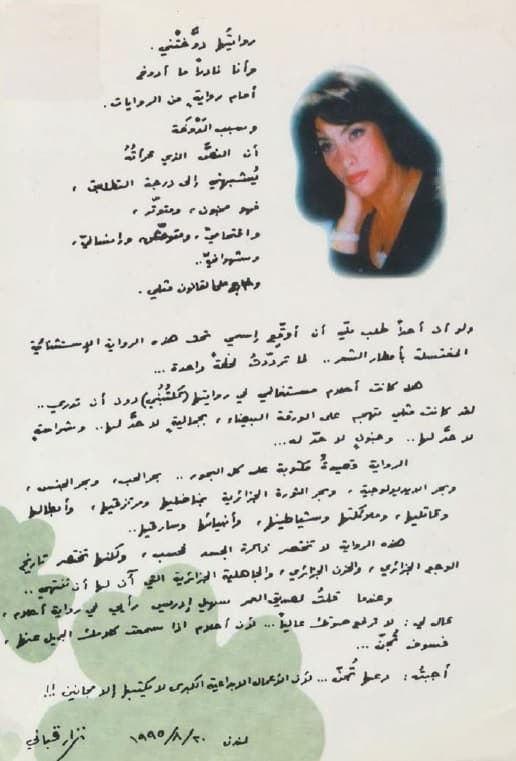 روايتُها دوَّختْني.
وأنا نادراً ما أدوخ
أمام روايةٍ من الروايات.
وسبب الدَوْخَة
أن النصَّ الذي قرأتُهُ
يُشبهني إلى درجة التطابق،
فهو مجنون، ومتوتّر،
واقتحاميّ، ومتوحّش، وإنسانيّ،
وشهوانيّ..
وخارج على القانون مثلي.
ولو أن أحداً طلب منّي أن أوقّع إسمي تحت هذه الرواية الإستثنائيّة
المغتسلة بأمطار الشعر.. لما تردّدتُ لحظةً واحدة...
هل كانت أحلام مستغانمي في روايتها (تكتُبُني) دون أن تدري..
لقد كانت مثلي تهجم على الورقة البيضاء، بجماليّةٍ لا حدَّ لها.. وشراسةٍ
لا حدَّ لها.. وجنونٍ لا حدّ له...
الرواية قصيدةٌ مكتوبة على كل البحور.. بحر الحب، وبحر الجنس،
وبحر الايديولوجية، وبحر الثورة الجزائرية بمناضليها ومرتزقيها، وأبطالها
وقاتليها، وملائكتها وشياطينها، وأنبيائها وسارقيها..
هذه الرواية لا تختصر ذاكرة الجسد فحسب، ولكنها تختصر تاريخ
الوجع الجزائري، والحزن الجزائري، والجاهلية الجزائرية التي آن لها أن تنتهي..
وعندما قلتُ لصديق العمر سهيل إدريس رأيي في رواية أحلام،
قال لي: لا ترفع صوتك عالياً... لأن أحلام اذا سمعت كلامك الجميل عنها،
فسوف تُجَنّ...
أجبتُهُ: دعها تُجَنّ... لأن الأعمال الابداعية الكبرى لا يكتبها إلا مجانين !!!
لندن ٢٠/٨/١٩٩٥ نزار قباني